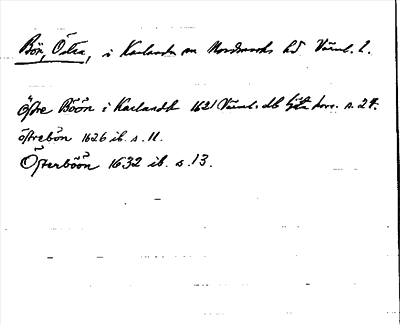 Bön, Östra, i Karlanda sn Nordmarks hd Värml. l.
Östre Böön i Karlandh 1621 Värml. db s. 24.
östrebön 1626 ib. s. 11.
Österböön 1632 ib. s. 13.